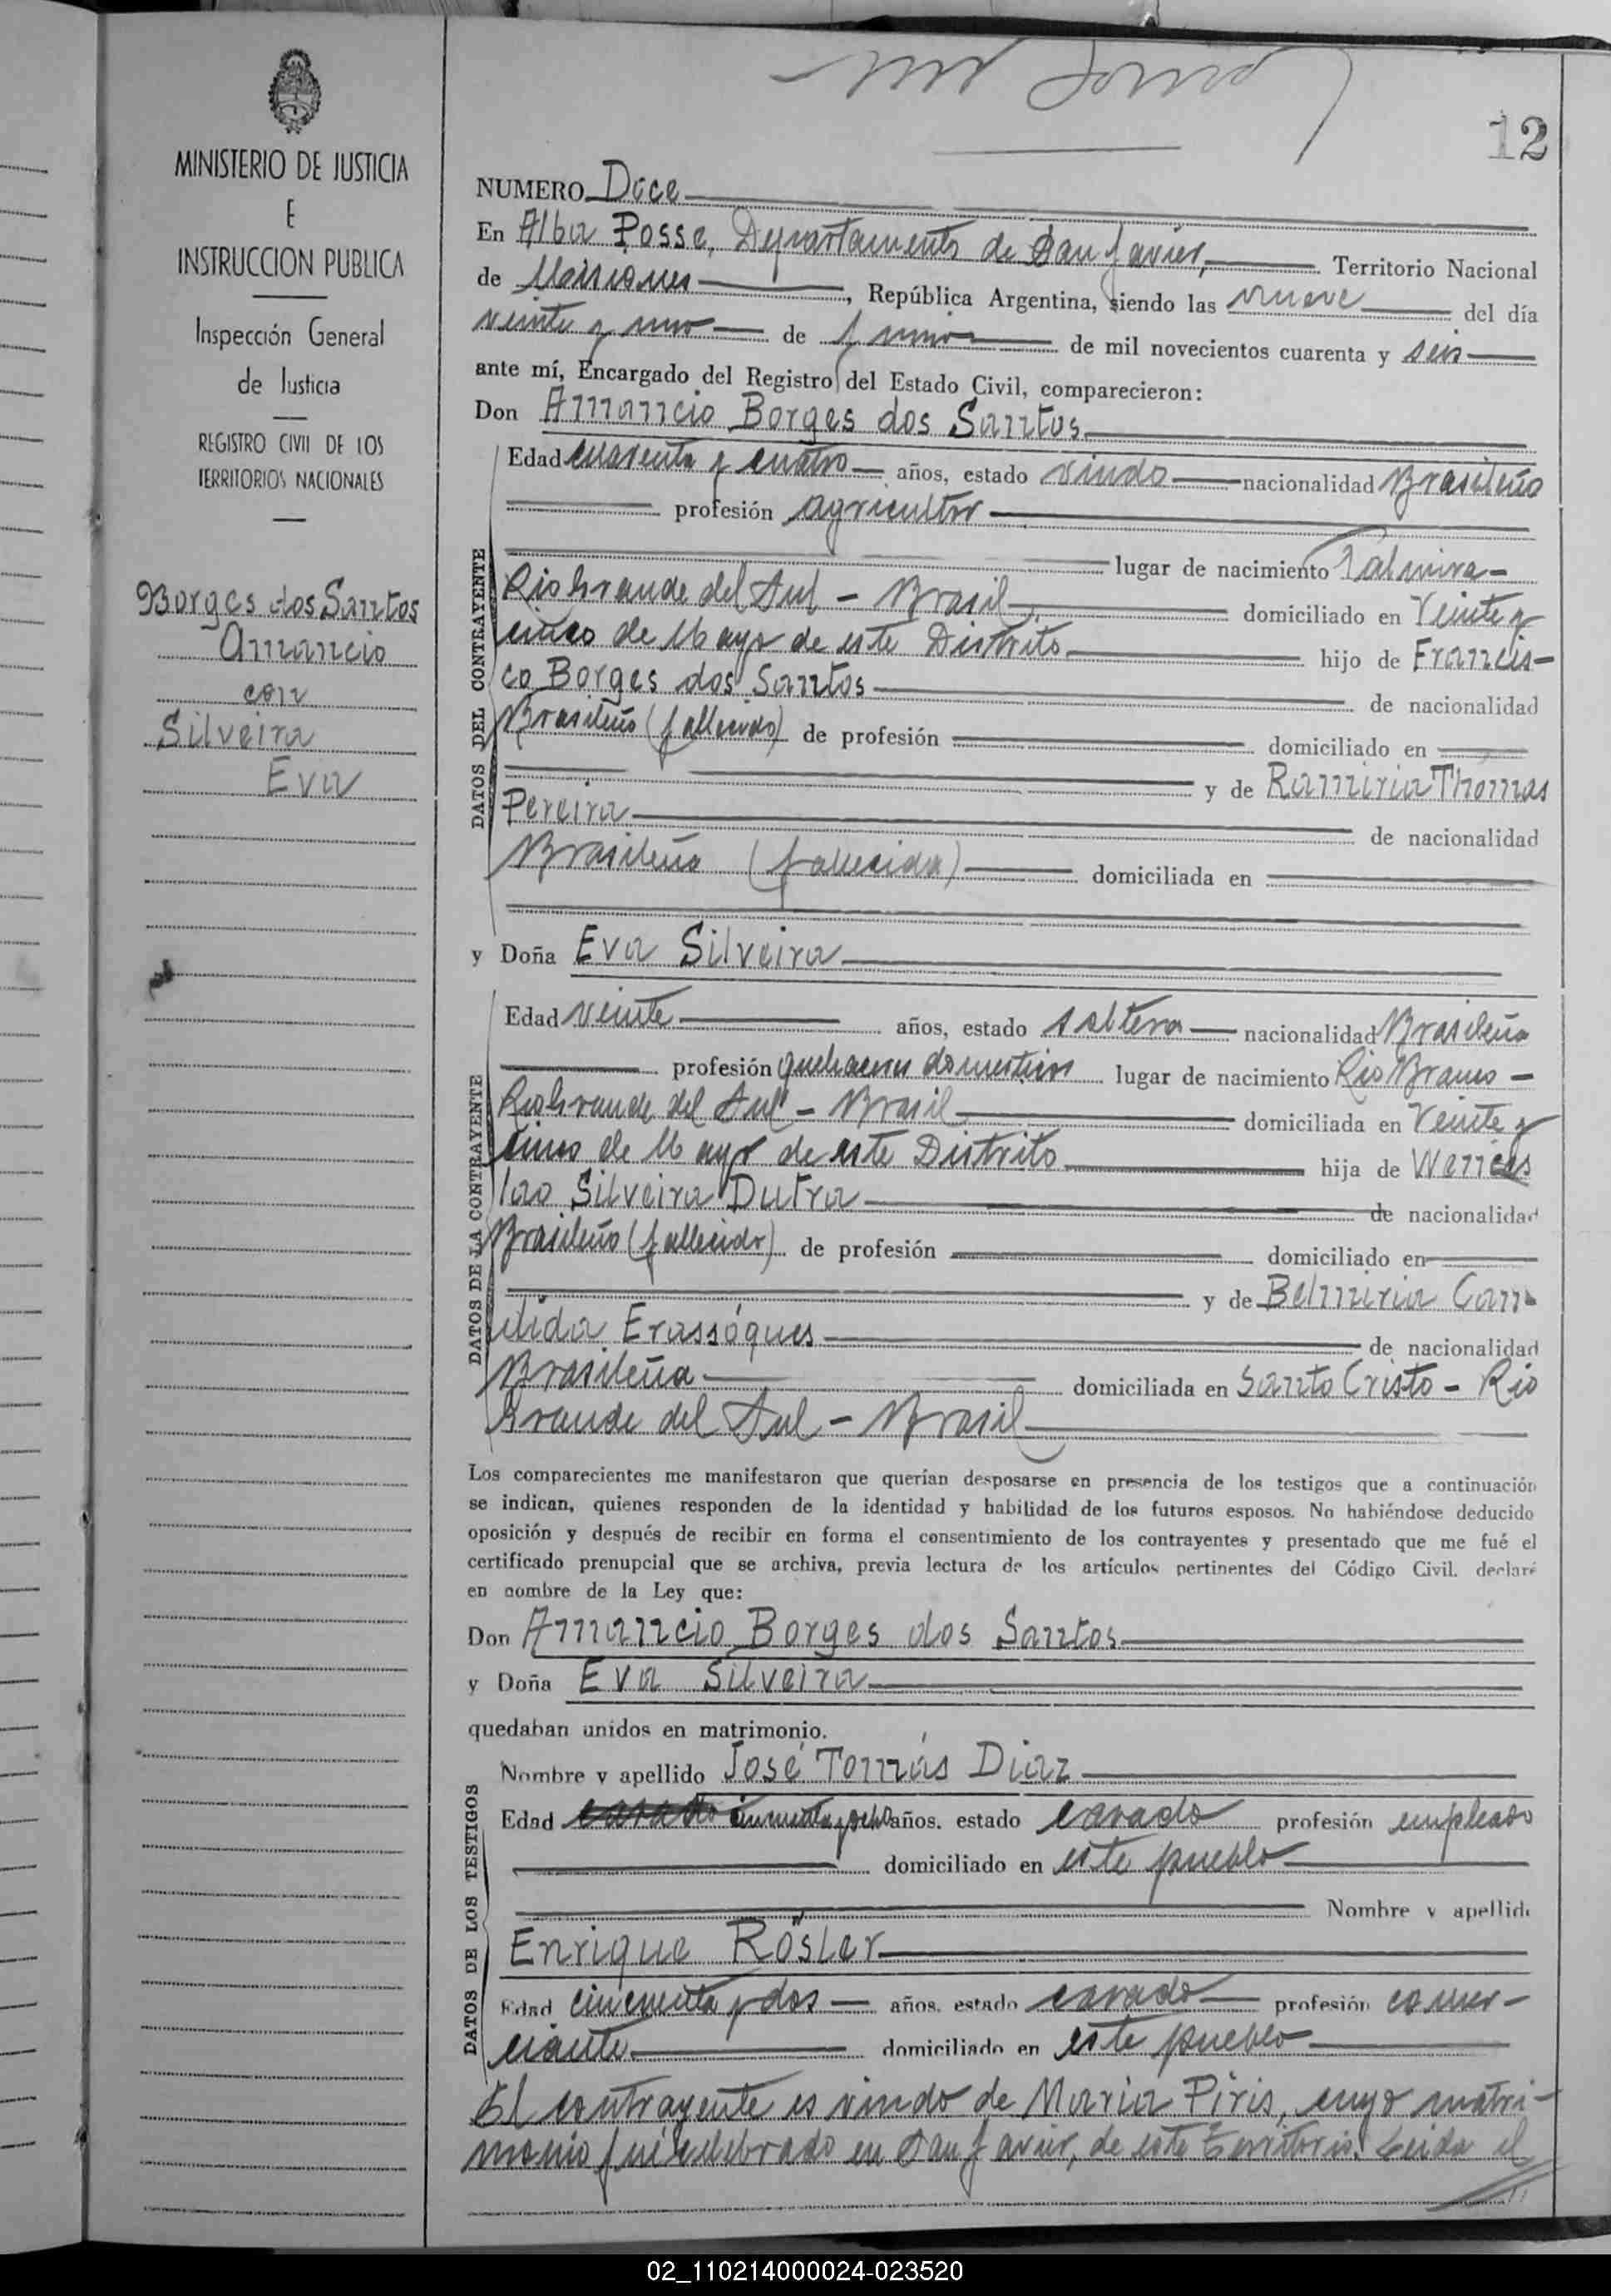 12
MINISTERIO DE JUSTICIA
E
INSTRUCCION PUBLICA
Inspección General
de Justicia
REGISTRO CIVIL DE LOS
TERRITORIOS NACIONALES
Borges dos Santos
Amancio
con
Silveira
Eva
NUMERO Doce
En Alba Posse, Departamento de San Javier, Territorio Nacional
de Misiones, República Argentina, siendo las nueve del día
veinte y uno de Junio de mil novecientos cuarenta y seis
ante mí, Encargado del Registro del Estado Civil, comparecieron:
Don Amancio Borges dos Santos
DATOS DEL CONTRAYENTE
Edad cuarenta y cuatro años, estado viudo nacionalidad Brasileño
profesión agricultor
lugar de nacimiento Palmira -
Rio Grande del Sul - Brasil domiciliado en Veinte y
cinco de Mayo de este Distrito hijo de Francis-
co Borges dos Santos de nacionalidad
Brasileño (fallecido) de profesión domiciliado en
y de Ramiria Thomas
Pereira de nacionalidad
Brasileña (fallecida) domiciliada en
y Doña Eva Silveira
DATOS DE LA CONTRAYENTE
Edad veinte años, estado soltera nacionalidad Brasileña
profesión quehaceres domesticos lugar de nacimiento Rio Branco -
Rio Grande del Sul - Brasil domiciliada en Veinte y
cinco de Mayo de este Distrito hija de Wences
lao Silveira Dutra de nacionalidad
Brasileño (fallecido) de profesión domiciliado en
y de Belmiria Can-
dida Erassóques de nacionalidad
Brasileña domiciliada en Santo Cristo - Rio
Grande del Sul - Brasil
Los comparecientes me manifestaron que querían desposarse en presencia de los testigos que a continuación
se indican, quienes responden de la identidad y habilidad de los futuros esposos. No habiéndose deducido
oposición y después de recibir en forma el consentimiento de los contrayentes y presentado que me fué el
certificado prenupcial que se archiva, previa lectura de los artículos pertinentes del Código Civil. declaré
en nombre de la Ley que:
Don Amancio Borges dos Santos
y Doña Eva Silveira
quedaban unidos en matrimonio.
DATOS DE LOS TESTIGOS
Nombre y apellido José Tomás Diaz
Edad cincuenta y ocho años. estado casado profesión empleado
domiciliado en este pueblo
Nombre y apellido
Enrique Rösler
Edad cincuenta y dos años. estado casado profesión comer-
ciante domiciliado en este pueblo
El contrayente es viudo de Maria Piris, cuyo matri-
monio fué celebrado en San Javier, de este Territorio. Leida el
02_110214000024-023520